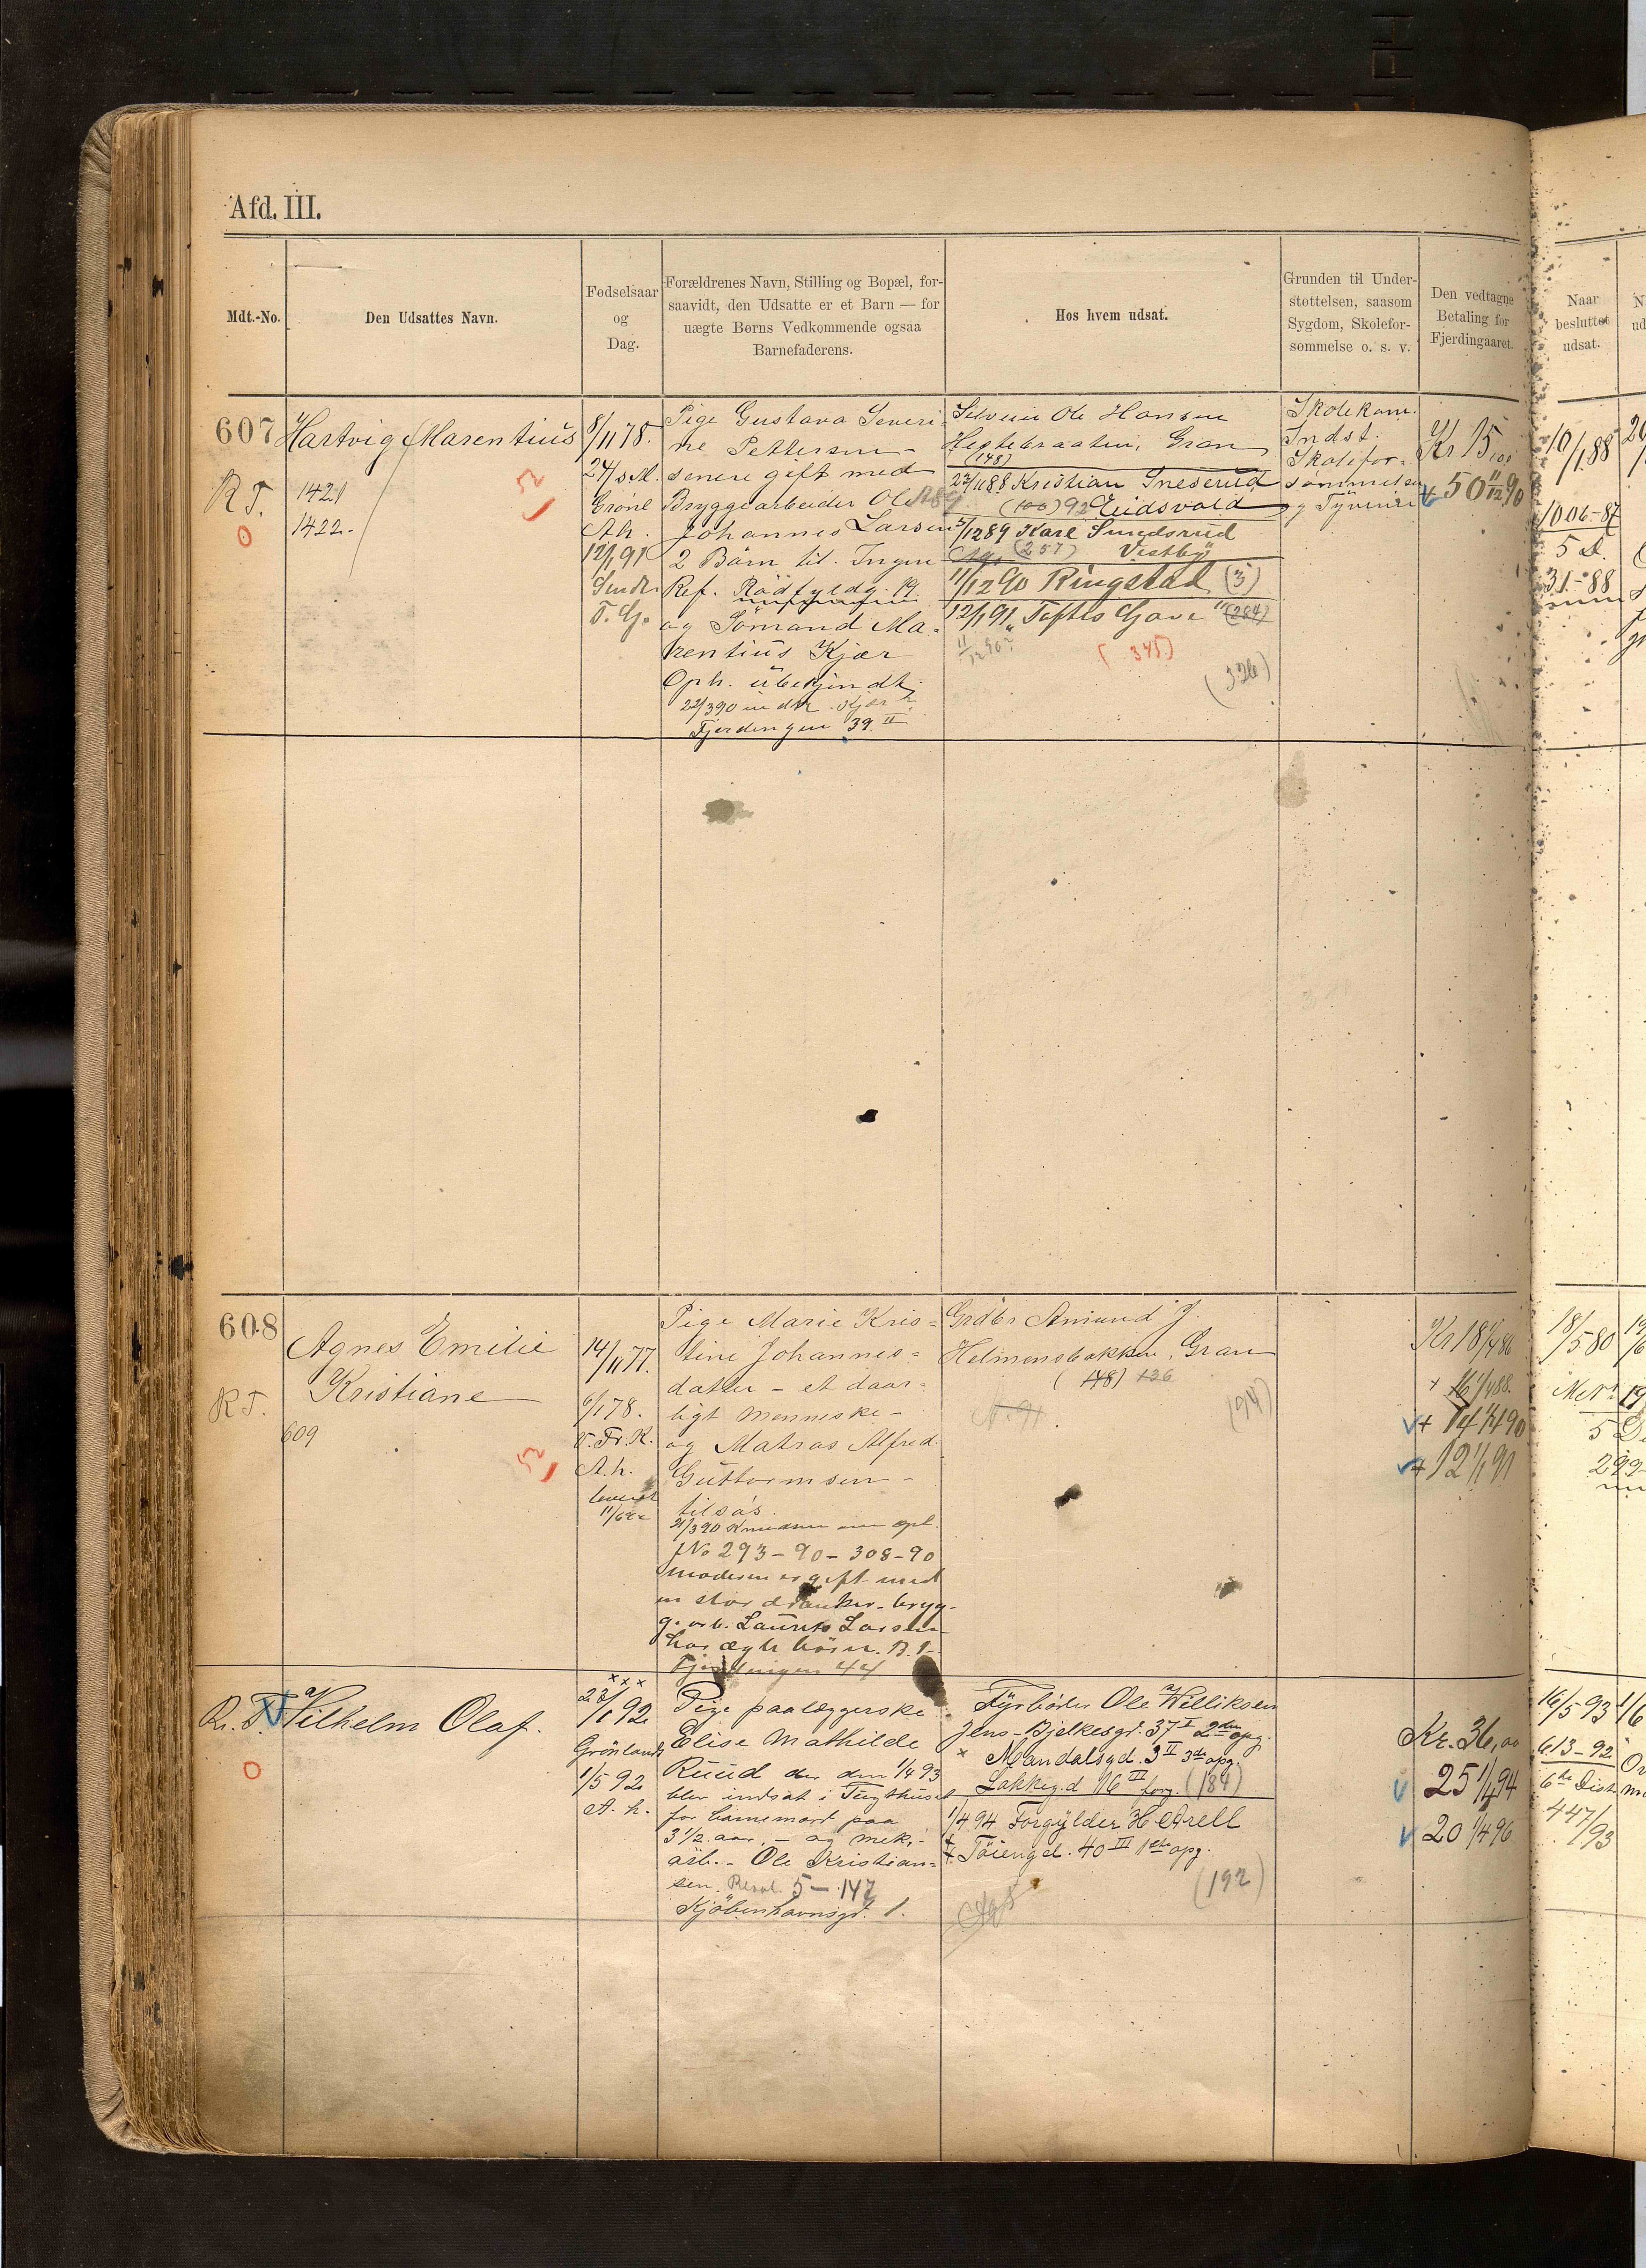 Afd. III.
Mdt.-No.
Den Udsattes Navn.
Fødselsaar
og
Dag.
Forældrenes Navn, Stilling og Bopæl, for-
saavidt, den Udsatte er et Barn — for
uægte Børns Vedkommende ogsaa
Barnefaderens.
Hos hvem udsat.
Grunden til Under-
støttelsen, saasom
Sygdom, Skolefor-
sømmelse o. s. v.
Den vedtagne
Betaling for
Fjerdingaaret.
Naar
besluttet
udsat.
607
R T.
0
Hartvig Marentius
1421
1422.
52
8/11 78.
24/5 M.
Grönl
A.h.
12/1 91
T. G.
Pige Gustava Severi-
ne Pettersen -
senere gift med
Bryggearbeider Ole
Johannes Larsen
2 Börn til. Ingen
Ref. Rödfyldg. 19.
og Sömand Ma-
rentius Kjær
Oph. übekjendt
22/3 90
Fjerdingen 39 II
Selveier Ole Hansen
Hegtebraaten, Gran
(148)
23/11 88 Kristian Sneserud
(100) 92 Eidsvold
5/12 89 Karl Smedsrud
(257) Vestby
11/12 90 Ringstad (3)
12/1 91 "Toftes Gave" (284)
(345)
(326)
Skolekom.
Indst.
Skolefor-
sömmelse
og Tyverier
Kr 15,00
50 11/12 90
10/1 88
1006-87
5 d.
31-88
608
R T.
Agnes Emilie
Kristiane
609
52
14/11 77.
6/1 78.
V. Fr. K.
A. h.
Pige Marie Kris-
tine Johannes-
datter - et daar-
ligt menneske -
og Matros Alfred
Guttormsen -
tilsös.
21/3 90 Knudsen opl.
JNo 293-90 - 308-90
moderen er gift med
en stor dranker - bryg-
g. arb. Laurits Larsen
har ægte börn. B. 1
Fjerdingen 44
Gråbr Amund J.
Helmensbakken, Gran
(148) 126
(94)
Kr 18 1/4 86
+ 16 1/4 88.
+ 14 1/4 90
+ 12 1/1 91
18/5 80
5 D
299-
R. T.
0
Vilhelm Olaf.
x x x
23/1 92
Grönlands
1/5 92
A. h.
Pige paalæggerske
Elise Mathilde
Ruud der den 1/4 93
blev indsat i Tugthuset
for barnemord paa
3 1/2 aar. - og mek.-
arb. - Ole Kristian-
sen. Resol. 5 - 147
Kjöbenhavnsgd. 1.
Fyrböder Ole Williksen
Jens-Bjelkesgd. 37 I 2den opg.
x Mandalsgd. 3 II 3de opg.
Lakkeg.d 16 III forg. (184)
1/4 94 Forgylder H Arell
Töiengd. 40 III 1ste opg.
(192)
Kr. 36,00
25 1/4 94
20 1/4 96
16/5 93
613-92
6te Dist.
447/93